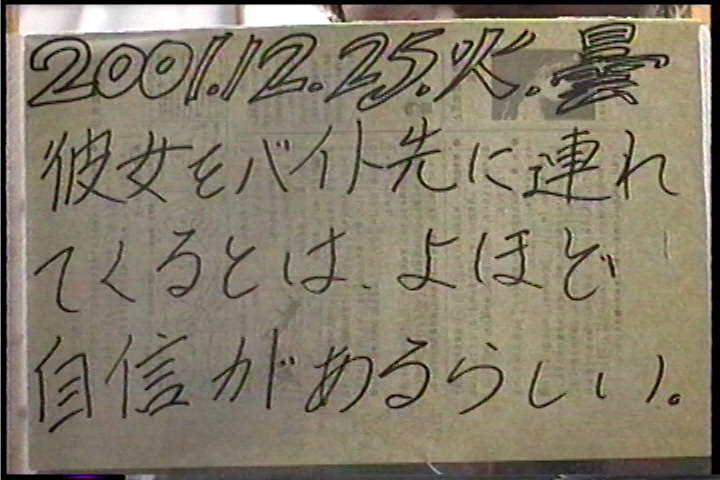 2001.12.25.火.曇
彼女をバイト先に連れ
てくるとは、よほど
自信があるらしい。